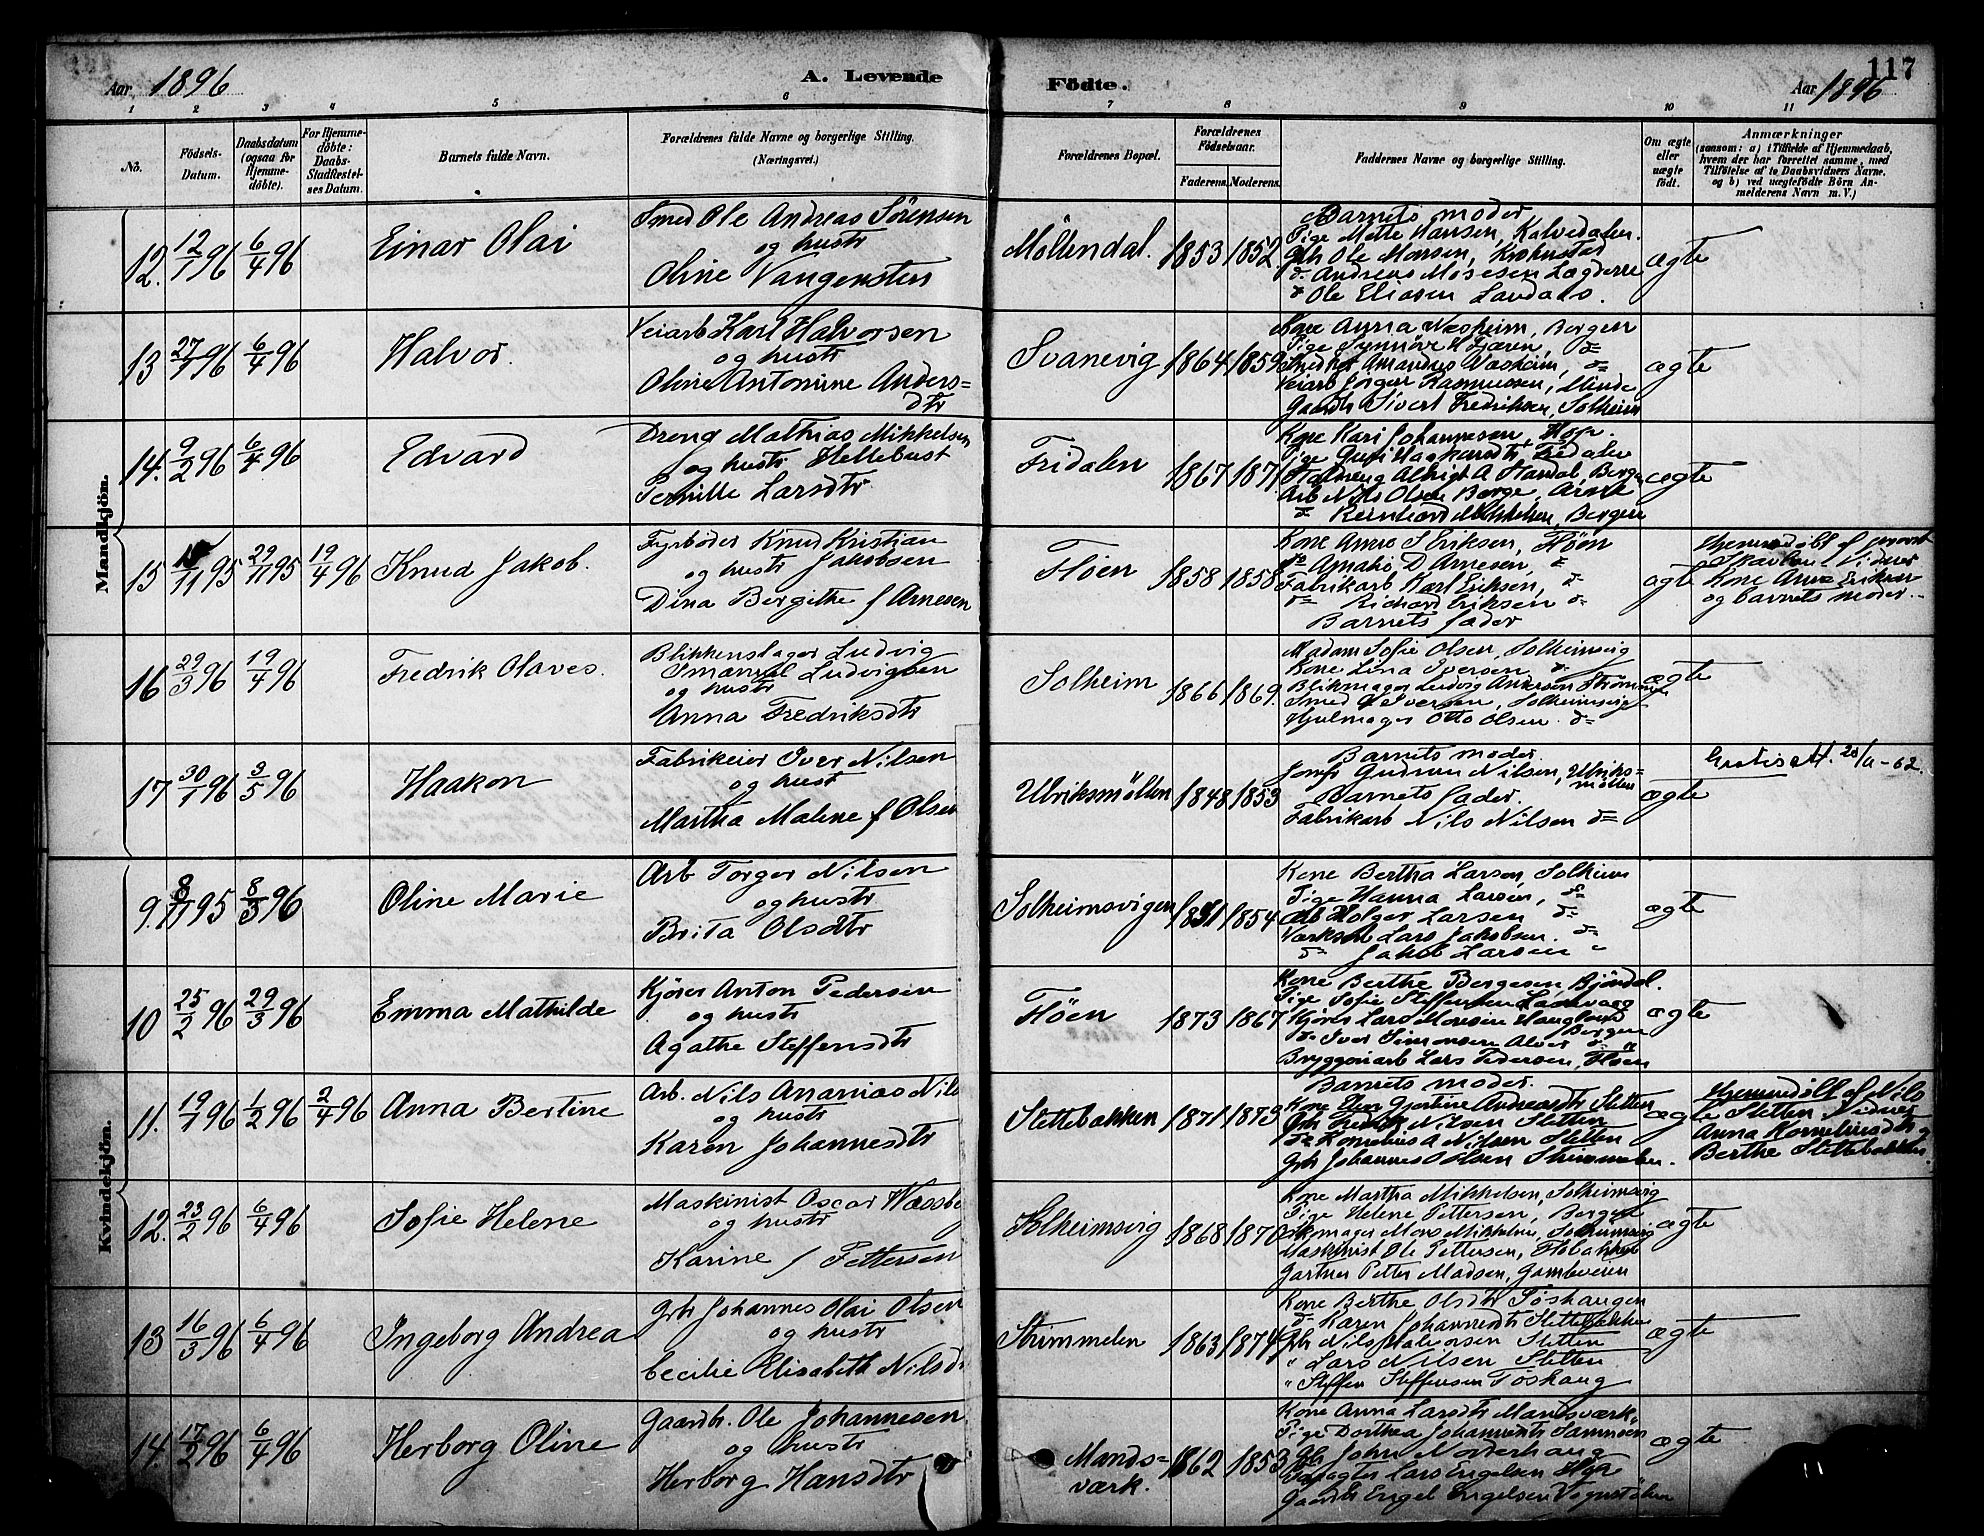 117
Aar 1896
A. Levende
Födte.
Aar 1896
1 2 3 4 5 6 7 8 9 10 11
No.
Födsels-
Datum.
Daabsdatum
(ogsaa for
Hjemme-
döbte).
For Hjemme-
döbte:
Daabs-
Stadfæstel-
ses Datum.
Barnets fulde Navn.
Forældrenes fulde Navne og borgerlige Stilling.
(Næringsvei.)
Forældrenes Bopæl.
Forældrenes
Födselsaar.
Faderens. Moderens.
Faddernes Navne og borgerlige Stilling.
Om ægte
eller
uægte
födt.
Anmærkninger
(saasom: a) i Tilfælde af Hjemmedaab,
hvem der har forrettet samme, med
Tilföielse af to Daabsvidners Navne,
og b) ved uægtefödte Börn An-
melderens Navn m. V.)
Mandkjön.
12. 12/1 96 6/4 96
Einar Olai
Smed Ole Andreas Sörensen
og hustr
Oline Vangensten
Möllendal. 1853 1852
Barnets moder
Pige Mette Hansen, Kalvedalen.
Gbr Ole Monsen, Krohnstad
d= Andreas Mosesen Lægderne
d= Ole Eliasen Landaas.
ægte
13 27/1 96 6/4 96
Halvor.
Veiarb Karl Halvorsen
og hustr
Oline Antonine Anders=
dtr
Svanevig 1864 1859
Kone Anna Næsheim, Bergen
Pige Synnöve H Fjæren d=
Amandus Næsheim, d=
Veiarb Jörgen Rasmussen, Minde
Gaardbr Sivert Fredriksen, Solheim
ægte
14. 9/2 96 6/4 96
Edvard
Dreng Mathias Mikkelsen
og hustr Hellebust
Pernille Larsdtr
Fridalen 1867 1871
Kone Kari Johannesen, Hop.
Pige Guri Haakensdtr, Fredalen
Arb Nils Olsen Borge, Arne
d= Bernhard Mikkelsen, Bergen
ægte
15 11 95 29/11 95 19/4 96
Knud Jakob.
Fyrböder Knud Kristian
og hustr Jakobsen
Dina Bergithe f Arnesen
Flöen 1858 1858
Kone Anne S Eriksen, Flöen
d= Amalie D Arnesen, d=
Fabrikarb Karl Eriksen, d=
d= Richard Eriksen d=
Barnets fader
ægte
Hjemmedöbt af provst
Vidner
Kone Anne Eriksen
og barnets moder.
16 29/3 96 19/4 96
Fredrik Olaves.
Blikkenslager Ludvig
Emanuel Ludvigsen
og hustr
Anna Fredriksdtr
Solheim 1866 1869
Madam Sofie Olsen, Solheimsvig
Kone Lina Iversen d=
Blikmager Ludvig Andersen Strömmen
Smed J Iversen, Solheimsvig
Hjulmager Otto Olsen. d=
ægte
17 30/1 96 3/5 96
Haakon
Fabrikeier Iver Nilsen
og hust
Martha Malene f Olsen
Ulriksmöllen 1848 1853
Barnets moder
Jomf Gudrun Nilsen, Ulriks=
möllen
Barnets fader.
Fabrikarb Nils Nilsen d=
ægte
Gratis att. -62.
Kvindekjön.
9. 8/11 95 8/3 96
Oline Marie
Arb Torger Nilsen
og hustr
Brita Olsdtr
Solheimsvigen 1851 1854
Kone Bertha Larsen Solheim
Pige Hanna Larsen, d=
Arb Holger Larsen d=
Lars Jakobsen. d=
d= Jakob Larsen "
ægte
10 25/2 96 29/3 96
Emma Mathilde
Kjörer Anton Pedersen
og hustr
Agathe Steffensdtr
Flöen 1873 1867
Kone Berthe Börgesen Bjöndal.
Pige Sofie Steffensen Ladevaag
Kjörer Lars Monsen Haugland
Bergen
d= Iver Simonsen Alver d=
Bryggeriarb Lars Pedersen, Flöen
ægte
11. 19/1 96 1/2 96 2/4 96
Anna Bertine
Arb. Nils Ananias Nils
og hustr
Karen Johannesdtr
Slettebakken 1871 1873
Barnets moder.
Kone Gjertine Andreasdtr Sletten
Gbr Fredrik Nilsen Sletten
d= Kornelius A Nilsen Sletten
Gbr Johannes Olsen Strimmelen.
ægte
Hjemmedöbt af Nils
Sletten Vidner
Anna Korneliusdtr og
Berthe Slettebakken.
12. 23/2 96 6/4 96
Sofie Helene
Maskinist Oscar Wæssbe
og hustr
Karine f Pettersen
Solheimsvig 1868 1870
Kone Martha Mikkelsen, Solheimsvig
Pige Helene Pettersen, Bergen
Mons Mikkelsen, Solheimsvig
Maskinist Ole Pettersen, Flöbakken
Gartner Petter Madsen, Gamleveien
ægte
13 16/3 96 6/4 96
Ingeborg Andrea
Gbr Johannes Olai Olsen
og hustr
Cecilie Elisabeth Nilsd
Strimmelen 1863 1874
Kone Berthe Olsdtr Töshaugen
d= Karen Johannesdtr Slettebakken
Gbr Nils Halvorsen Sletten
" Lars Nilsen Sletten
" Steffen Steffensen Töshaug
ægte
14. 17/2 96 6/4 96
Herborg Oline
Gaardbr. Ole Johannesen
og hustr
Herborg Hansdtr
Mands=
værk. 1862 1853
Kone Anna Larsdtr Mandsværk,
Pige Dorthea Johannesdtr Samnöen
Gbr John Norderhaug
Lars Engelsen Hop
Gaardbr Engel Engelsen Vognstölen
ægte